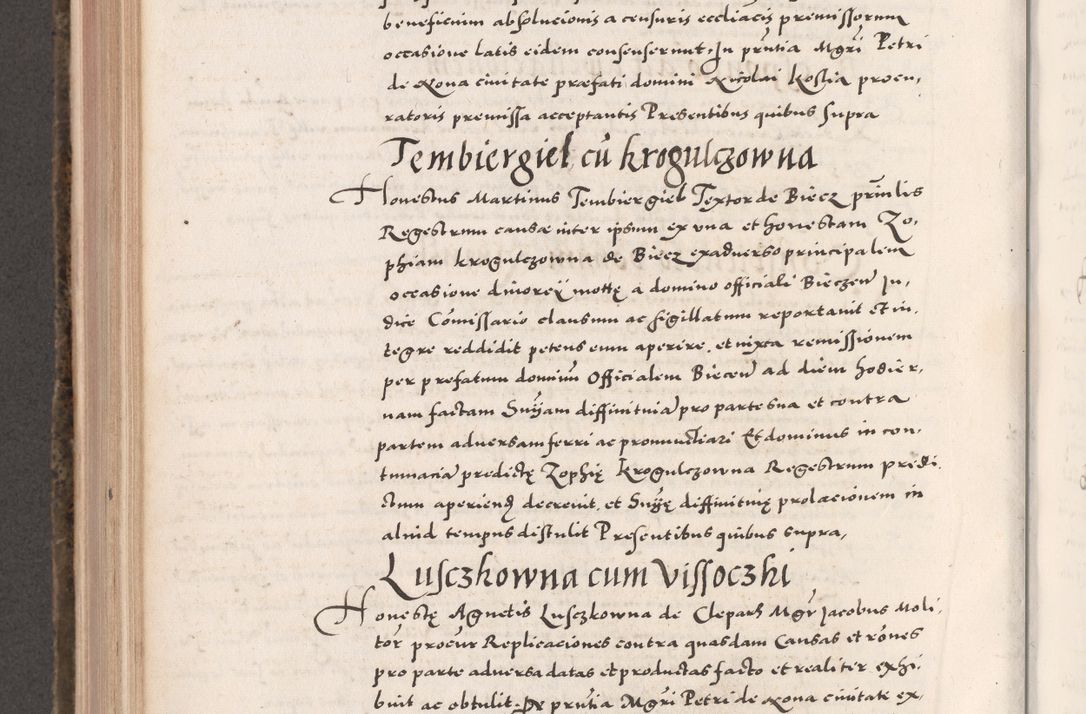 beneficium absolucionis a censuris eccliacis premissorum
occasione latis eidem consenserunt, In pñtia Mgri Petri
de Nova civitate præfati domini Nicolai Kostia procu,
ratoris premissa acceptantis Presentibus quibus supra
Tembiergiel cū krogulczowna
Honestus Martinus Tembiergiel Textor de Biecz prñlis
Regestrum causæ inter ipsum ex una et honestam Zo,
phiam krogulczowna de Biecz ex adverso principalem
occasione divorcy mottę a domino officiali Bieczeñ Ju,
dice Cōmissario clausum ac sigillatum reportavit et in,
tegre reddidit petens eum aperire, et iuxta remissionem
per prefatum dominū Officialem Bieceñ ad diem hodier,
nam factam Suỹam diffinitiuā pro parte sua et contra
partem adversam ferri ac pronuncliari Et dominus in con,
tumaciā predictę Zophię Krogulczowna Regestrum predi,
ctum aperiend decrevit, et Suỹę diffinitivę prolacionem in
aliud tempus distulit Presentibus quibus supra,
Lusczkowna cum Vissoczki
Honestę Agnetis Lusczkowna de Clepars Mgr Jacobus Moli,
tor procur Replicaciones contra quasdam Causas et rōnes
pro parte adversa datas et productas facto et realiter exhi,
buit ac obtulit, In pñtia Mgri Petri de Nova civitate ex,